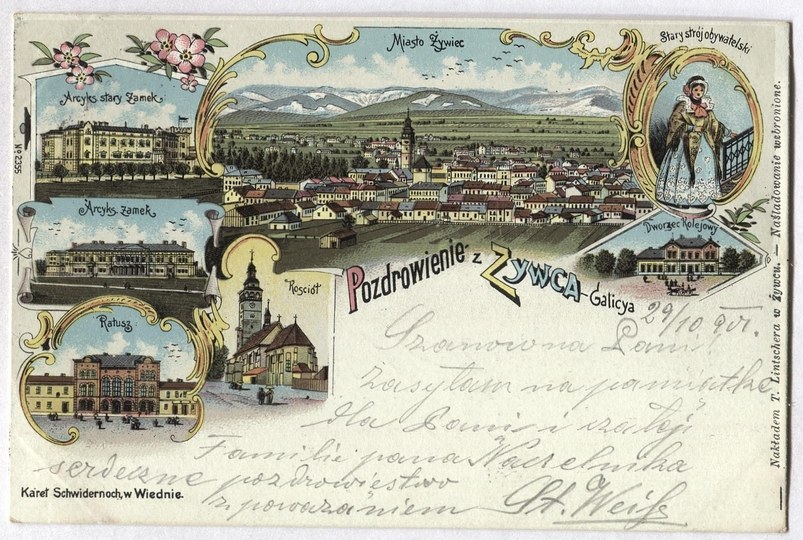 Miasto Żywiec
Stary strój obywatelski
Arcyks stary Zamek
Arcyks. Zamek
Dworzec Kolejowy
Kościół
Ratusz
Pozdrowienie z ŻYWCA - Galicya
29/10
Szanowna Pani!
Zasyłam na pamiątkę
dla Pani i całej
Familie pana Naczelnika
serdeczne pozdrowiestwo
z poważaniem St. Weiss
Karel Schwidernoch, w Wiednie.
No 2355
Nakładem T. Lintschera w Żywcu. — Naśladowanie wzbronione.